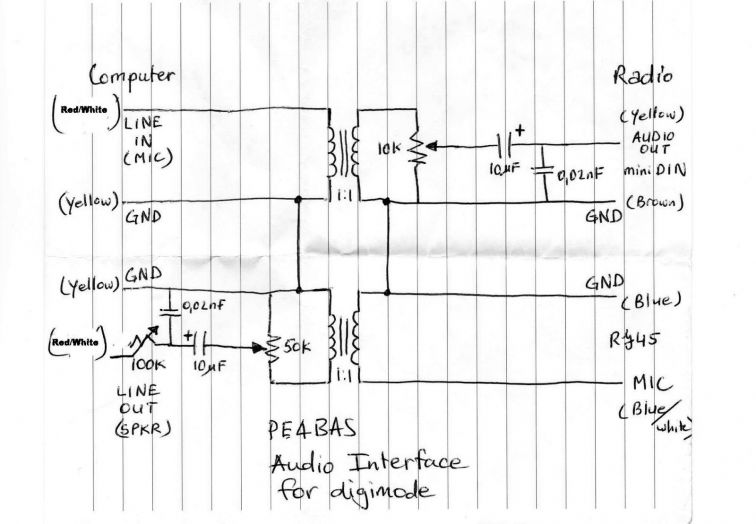 Computer
Radio
Red/White
LINE
IN
(MIC)
(Yellow)
AUDIO
OUT
mini DIN
10K
10µF
+
0,02nF
1:1
(Yellow)
GND
GND
(Brown)
(Yellow)
GND
GND
(Blue)
0,02nF
Red/White
+
100K
10µF
50K
1:1
Ry45
LINE
OUT
(SPKR)
MIC
(Blue/
white)
PE4BAS
Audio Interface
for digimode